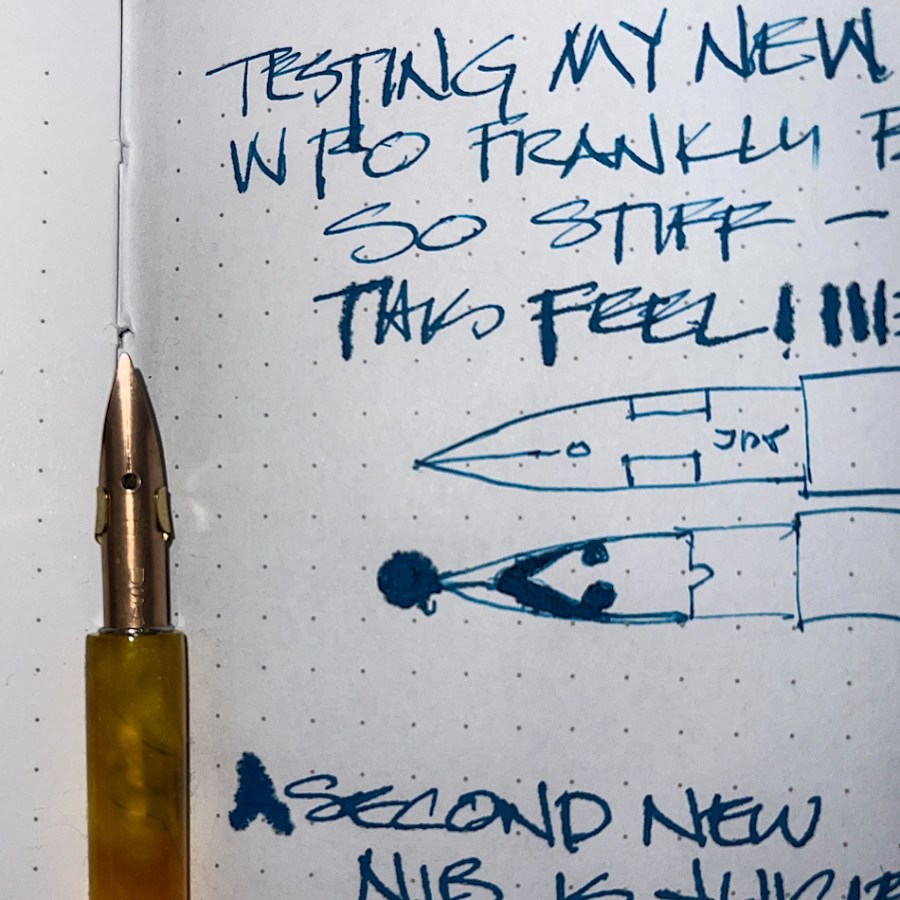 TESTING MY NEW
W FRANKLY
SO STIFF —
THIS FEEL!
A SECOND NEW
NIB IS